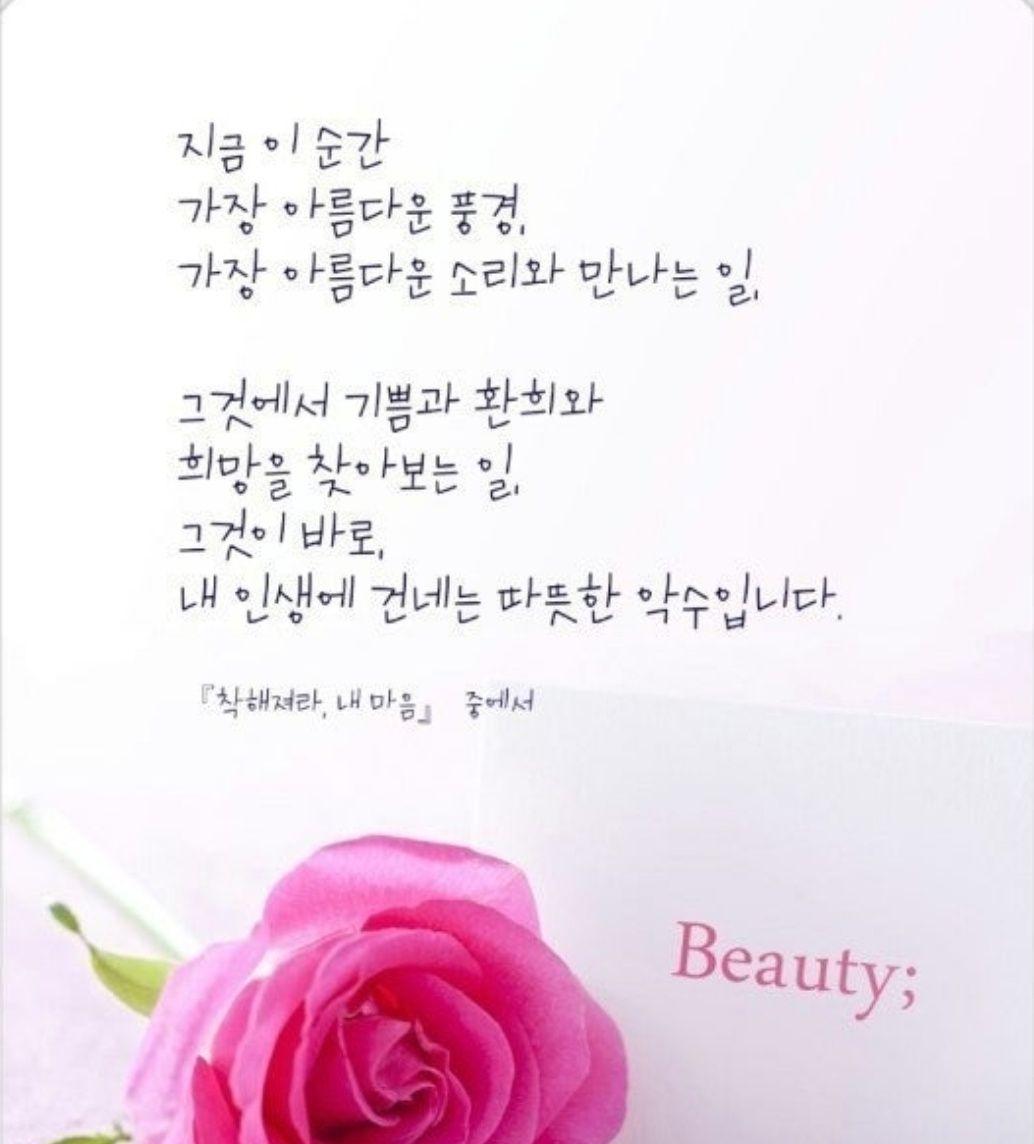 지금 이 순간
가장 아름다운 풍경,
가장 아름다운 소리와 만나는 일,
그것에서 기쁨과 환희와
희망을 찾아보는 일,
그것이 바로,
내 인생에 건네는 따뜻한 악수입니다.
『착해져라, 내 마음』 중에서
Beauty;